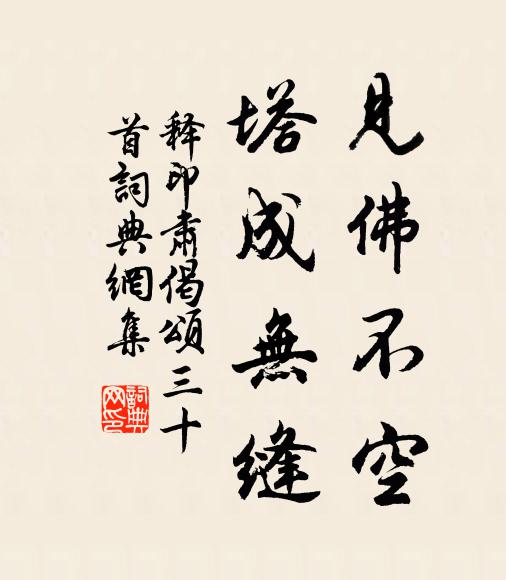 見佛不空
塔成無縫
釋印肅偈頌三十
首詞典網集
詞典
网印